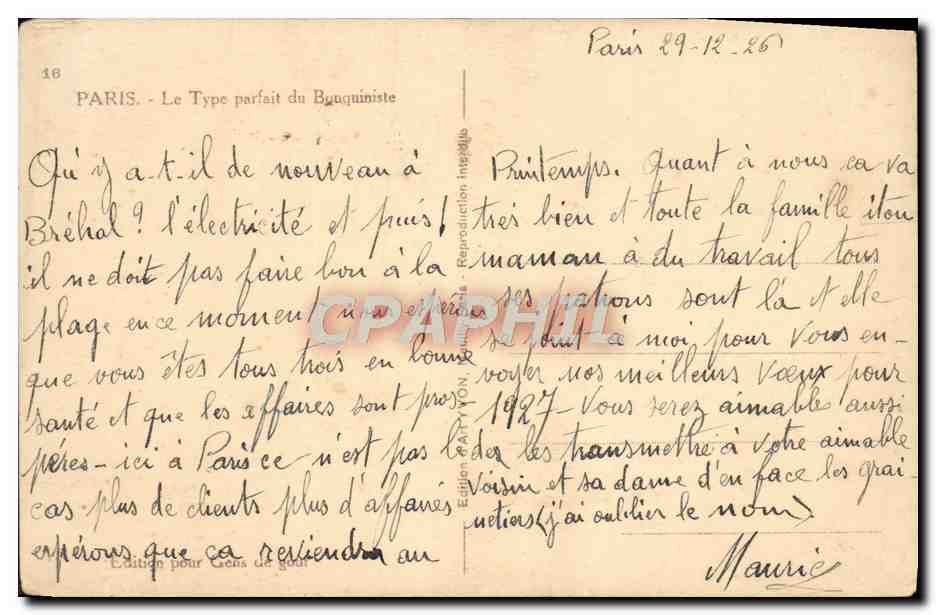 Paris 29-12-26
16
PARIS. - Le Type parfait du Bouquiniste
Qu'y a-t-il de nouveau à
Bréhal? l'électricité et puis!
il ne doit pas faire bon à la
plage en ce moment nous espérons
que vous êtes tous trois en bonne
santé et que les affaires sont pros
pères - ici à Paris ce n'est pas le
cas plus de clients plus d'affaires
espérons que ça reviendra au
Edition pour Gens de goût
Edition D'ART YVON, Reproduction interdite
Printemps. Quant à nous ca va
très bien et toute la famille itou
maman à du travail tous
ses patrons sont là et elle
se joint à moi pour vous en-
voyer nos meilleurs vœux pour
1927 - Vous serez aimable aussi
de les transmettre à votre aimable
voisin et sa dame d'en face les grai-
netiers (j'ai oublier le nom)
Maurice
CPAPHIL